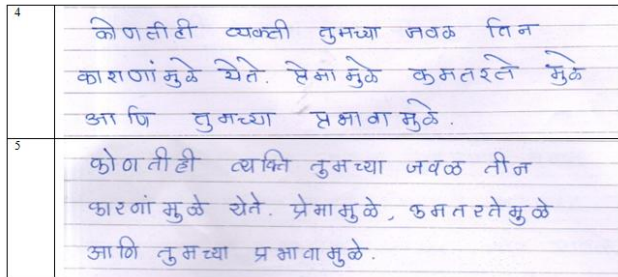 4
कोणतीही व्यक्ती तुमच्या जवळ तिन
काराणांमुळे येते. प्रेमामुळे कमतरते मुळे
आणि तुमच्या प्रभावामुळे.
5
कोणतीही व्यक्ति तुमच्या जवळ तीन
कारणांमुळे येते. प्रेमामुळे, कमतरतेमुळे
आणि तुमच्या प्रभावामुळे.